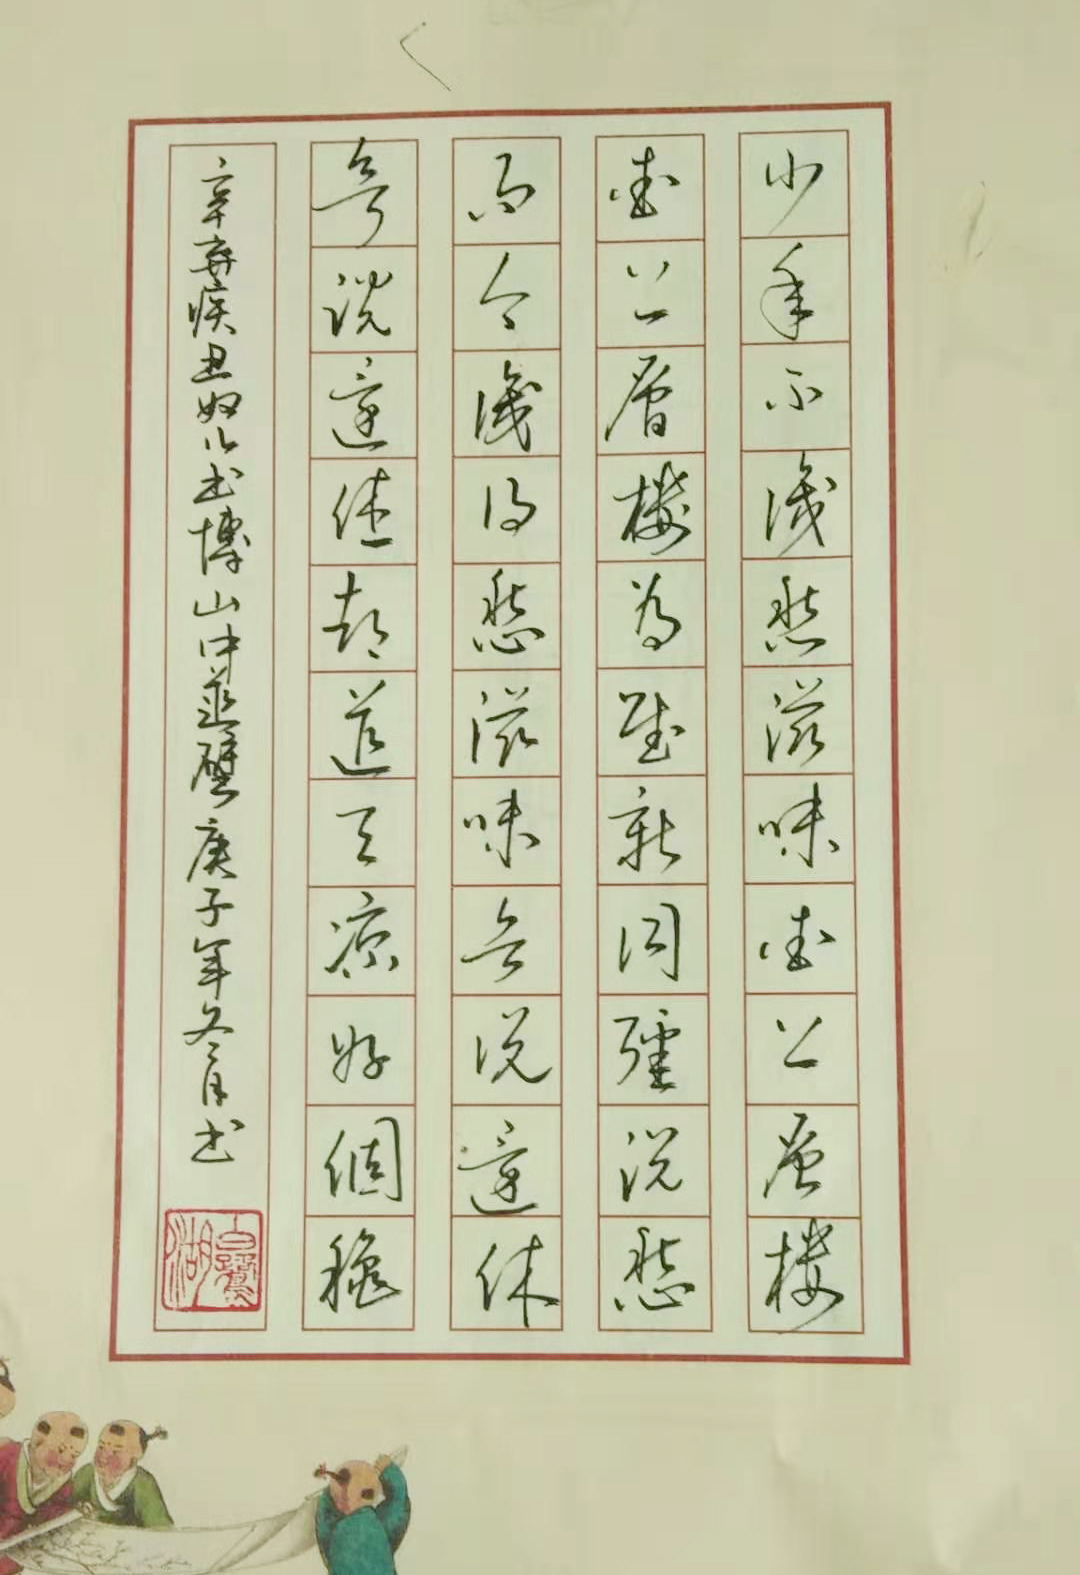 少年不識愁滋味愛上層樓
愛上層樓為賦新詞彊說愁
而今識得愁滋味欲說還休
欲說還休却道天涼好個穐
辛棄疾丑奴儿书博山中道壁庚子年冬月书
白鷺湖